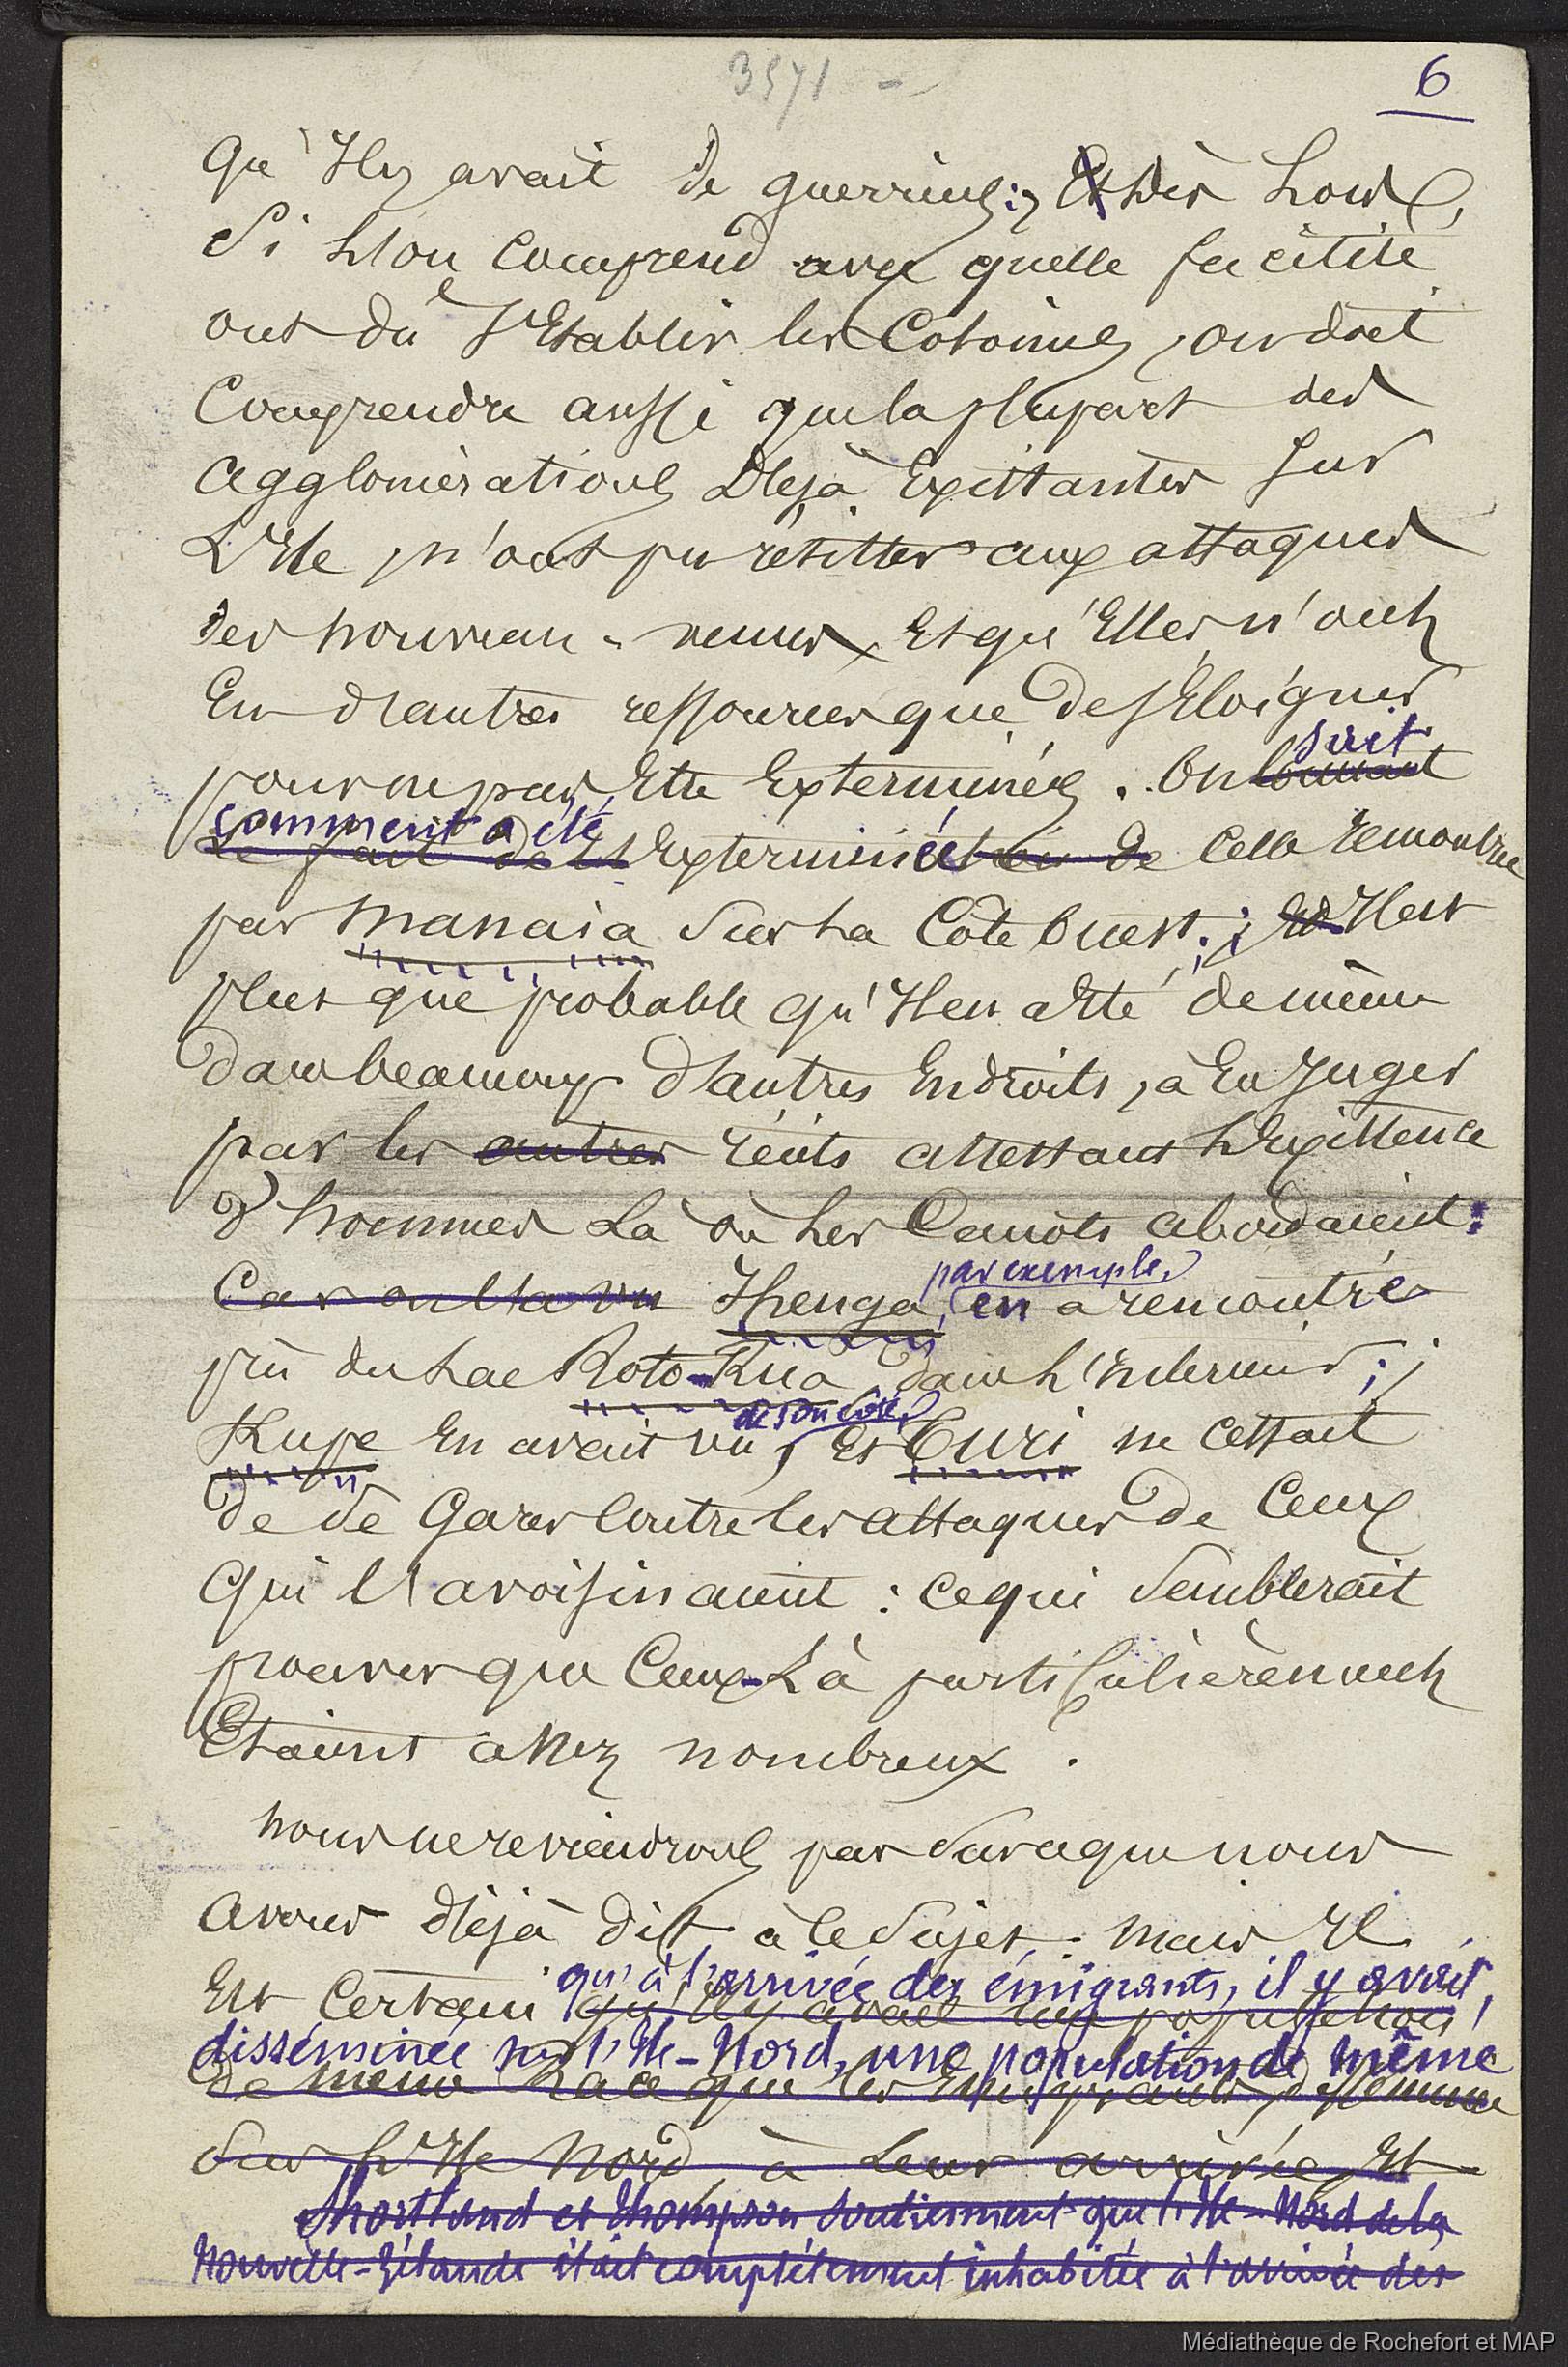 3571 -
6
qu'Il y avait de guerriers; Et dès Lors,
Si L'on Comprend avec quelle facilité
ont dû s'Etablir les Colonies, on doit
Comprendre aussi que la plupart des
agglomérations Déjà Existantes sur
L'Ile, n'ont pu résister aux attaques
des nouveau-venus, Et qu'Elles n'ont
Eu d'autres ressources que de s'Eloigner
pour ne pas Etre Exterminées. On courait
sait
Le fait de l'Extermination de Celle rencontrée
comment a été
par Manaia Sur La Côte Ouest; Et Il est
plus que probable qu'Il en a Eté de même
dans beaucoup d'autres Endroits, à En Juger
par les autres récits attestant L'Existence
d'hommes Là où Les Canots abordaient:
par exemple,
Car on l'a vu Ihenga, en a rencontré
près du Lac Roto-Rua, dans L'Intérieur;
de son côté,
Kupe En avait vu, Et Turi ne cessait
de Se Garer Contre les attaques de Ceux
qui l'avoisinaient: ce qui Semblerait
prouver que Ceux-Là particulièrement
Etaient assez nombreux.
nous ne reviendrons pas Sur ce que nous
avons déjà dit à ce Sujet: mais Il
qu'à l'arrivée des émigrants, il y avait,
Est Certain qu'Il y avait une population
disséminée sur l'Ile-Nord, une population de même
de même Race que les Emigrants, disséminée
Sur L'Ile Nord, à Leur arrivée, Et
Shortland et Thompson soutiennent que l'Ile-Nord de la
Nouvelle-Zélande était complètement inhabitée à l'arrivée des
Médiathèque de Rochefort et MAP